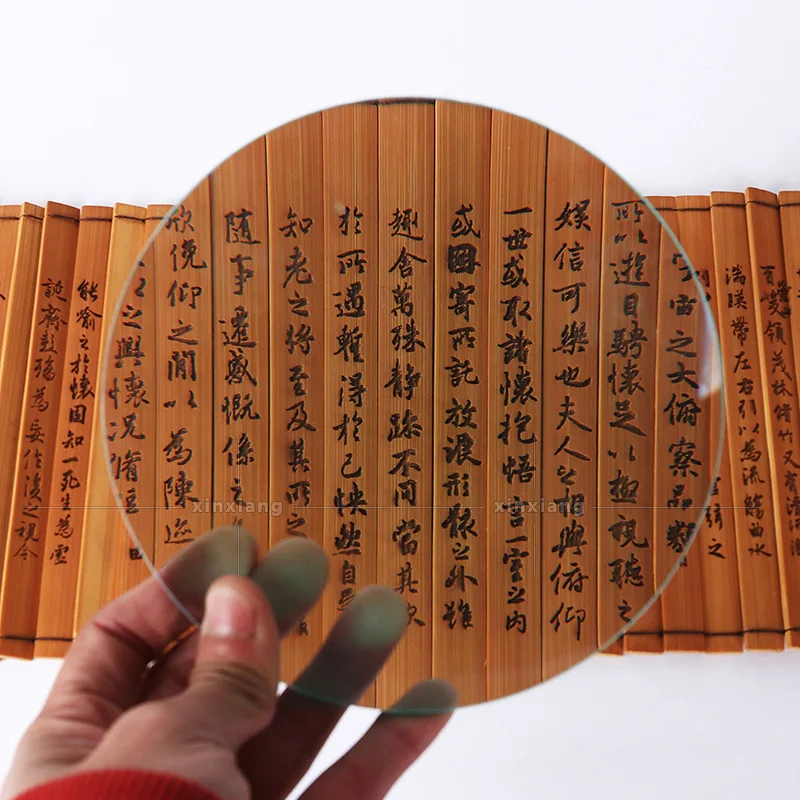 峻領茂林脩竹又有清流激
湍暎帶左右引以為流觴曲水
絃之
宇宙之大俯察品類
所以遊目騁懷足以極視聽之
娛信可樂也夫人之相與俯仰
一世或取諸懷抱悟言一室之內
或因寄所託放浪形骸之外雖
趣舍萬殊靜躁不同當其欣
於所遇暫得於己怏然自足
知老之將至及其所之
隨事遷感慨係之
欣俛仰之閒以為陳迹
之興懷況脩短
能喻之於懷固知一死生為虛
誕齊彭殤為妄作後之視今
xinxiang
xinxiang